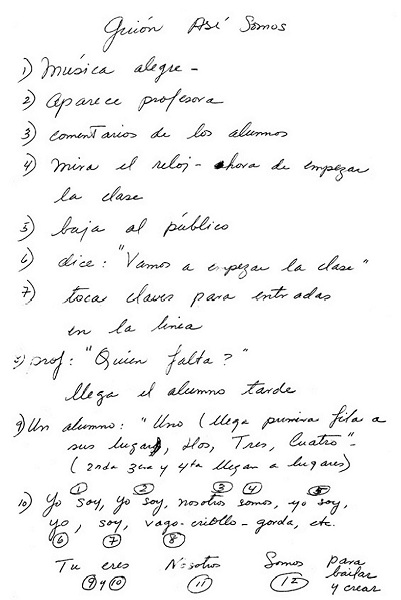 Guión Así Somos
1) Música alegre -
2) Aparece profesora
3) comentarios de los alumnos
4) mira el reloj - ahora de empezar
la clase
5) baja al público
6) dice: "Vamos a empezar la clase"
7) tocar claves para entradas
en la linea
8) prof: "Quien falta?"
llega el alumno tarde
9) Un alumno: "Uno (llega primera fila a
sus lugares, Dos, Tres, Cuatro" -
(2nda 3era y 4ta llegan a lugares)
① ② ③ ④ ⑤
10) Yo soy, yo soy, nosotros somos, yo soy,
yo, soy, vago - criollo - gorda, etc.
⑥ ⑦ ⑧
Tu eres Nosotros Somos para
bailar
y crear
⑨ y ⑩ ⑪ ⑫